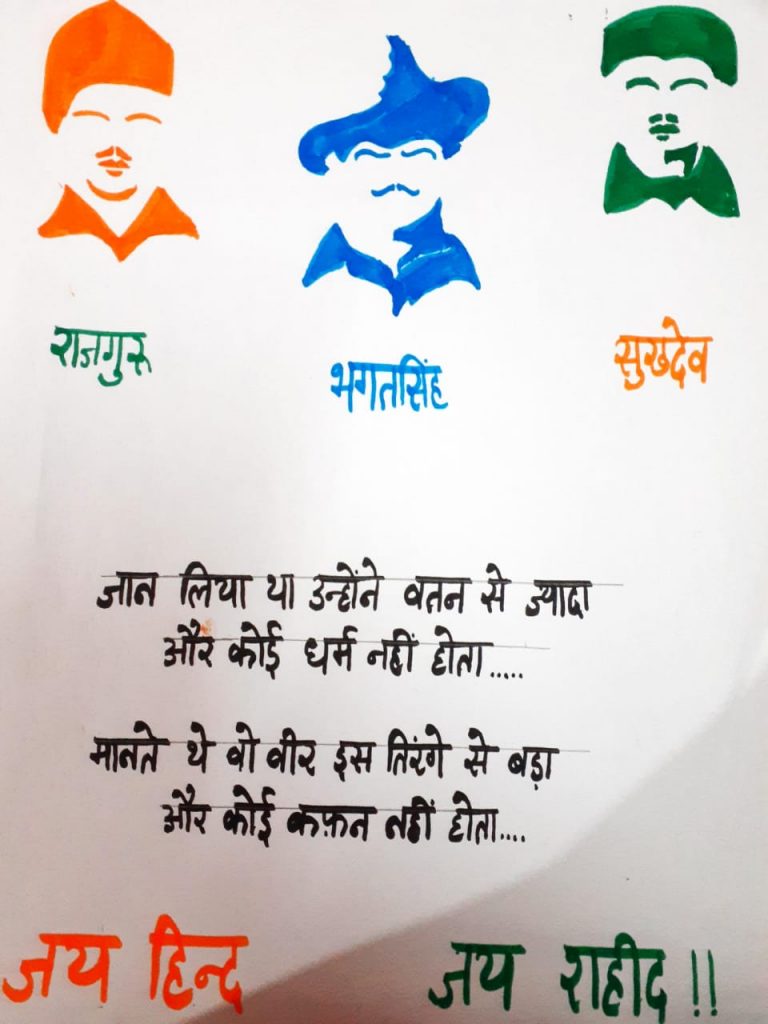 राजगुरू
भगतसिंह
सुखदेव
जान लिया था उन्होंने वतन से ज्यादा
और कोई धर्म नहीं होता.....
मानते थे वो वीर इस तिरंगे से बड़ा
और कोई कफ़न नहीं होता....
जय हिन्द
जय शहीद !!